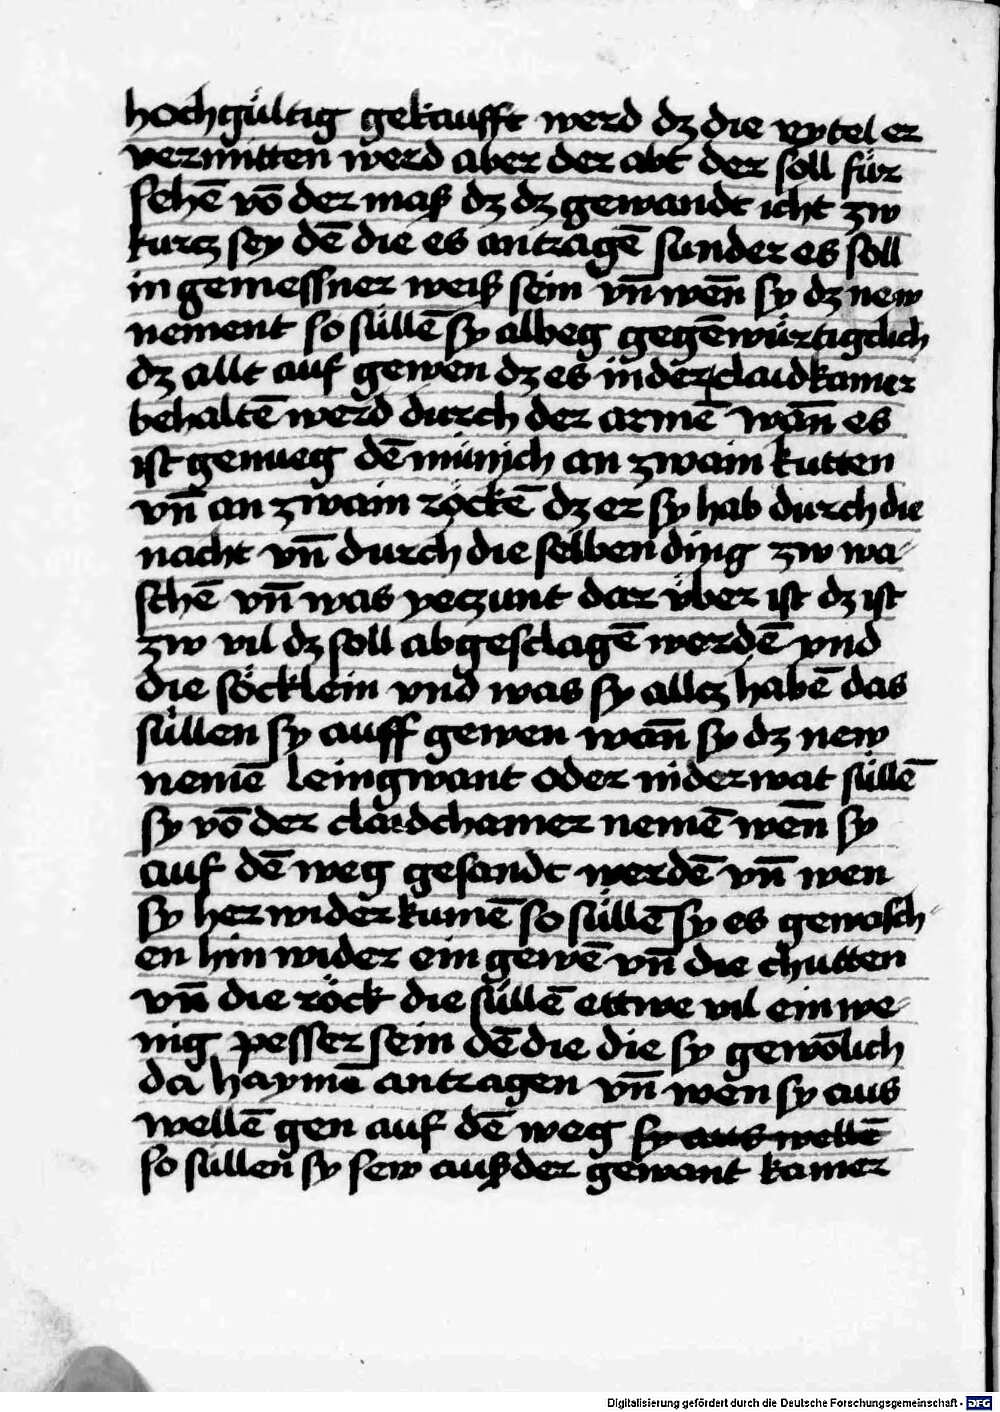 hochgültig gekaufft werd dʒ die eytel er
vermitten werd aber der abt der soll für
sehē vō der maß dʒ dʒ gewandt icht zw
kurcz sey dē die es antragē sunder es soll
in gemessner weiß sein vn̄ wen̄ sy dʒ new
nement so süllē sy albeg gegēwürtigclich
dʒ allt auf gewen dʒ es in der claidkamer
behaltē werd durch der armē wan̄ es
ist genueg dē münich an zwain kutten
vn̄ an zwain röckē dʒ er sy hab durch die
nacht vn̄ durch die selben ding zw wa-
schē vn̄ was yeczunt dar über ist dʒ ist
zw vil dʒ soll abgesclagē werdē vnd
die söcklein vnd was sy alltz habē das
süllen sy auff gewen wan̄ sy dʒ new
nemē leingwant oder niderwat süllē
sy vō der claidchamer nemē wen̄ sy
auf dē weg gesandt werdē vn̄ wen
sy her wider kumē so süllē sy es gewasch-
en hin wider ein gewē vn̄ die chutten
vn̄ die röck die süllē ettwe vil ein we-
nig pesser sein dē die die sy gewōlich
da haymē antragen vn̄ wen sy aus
wellē gen auf dē weg sy aus wellē
so süllen sy sew auß der gewant kamer
Digitalisierung gefördert durch die Deutsche Forschungsgemeinschaft - DFG